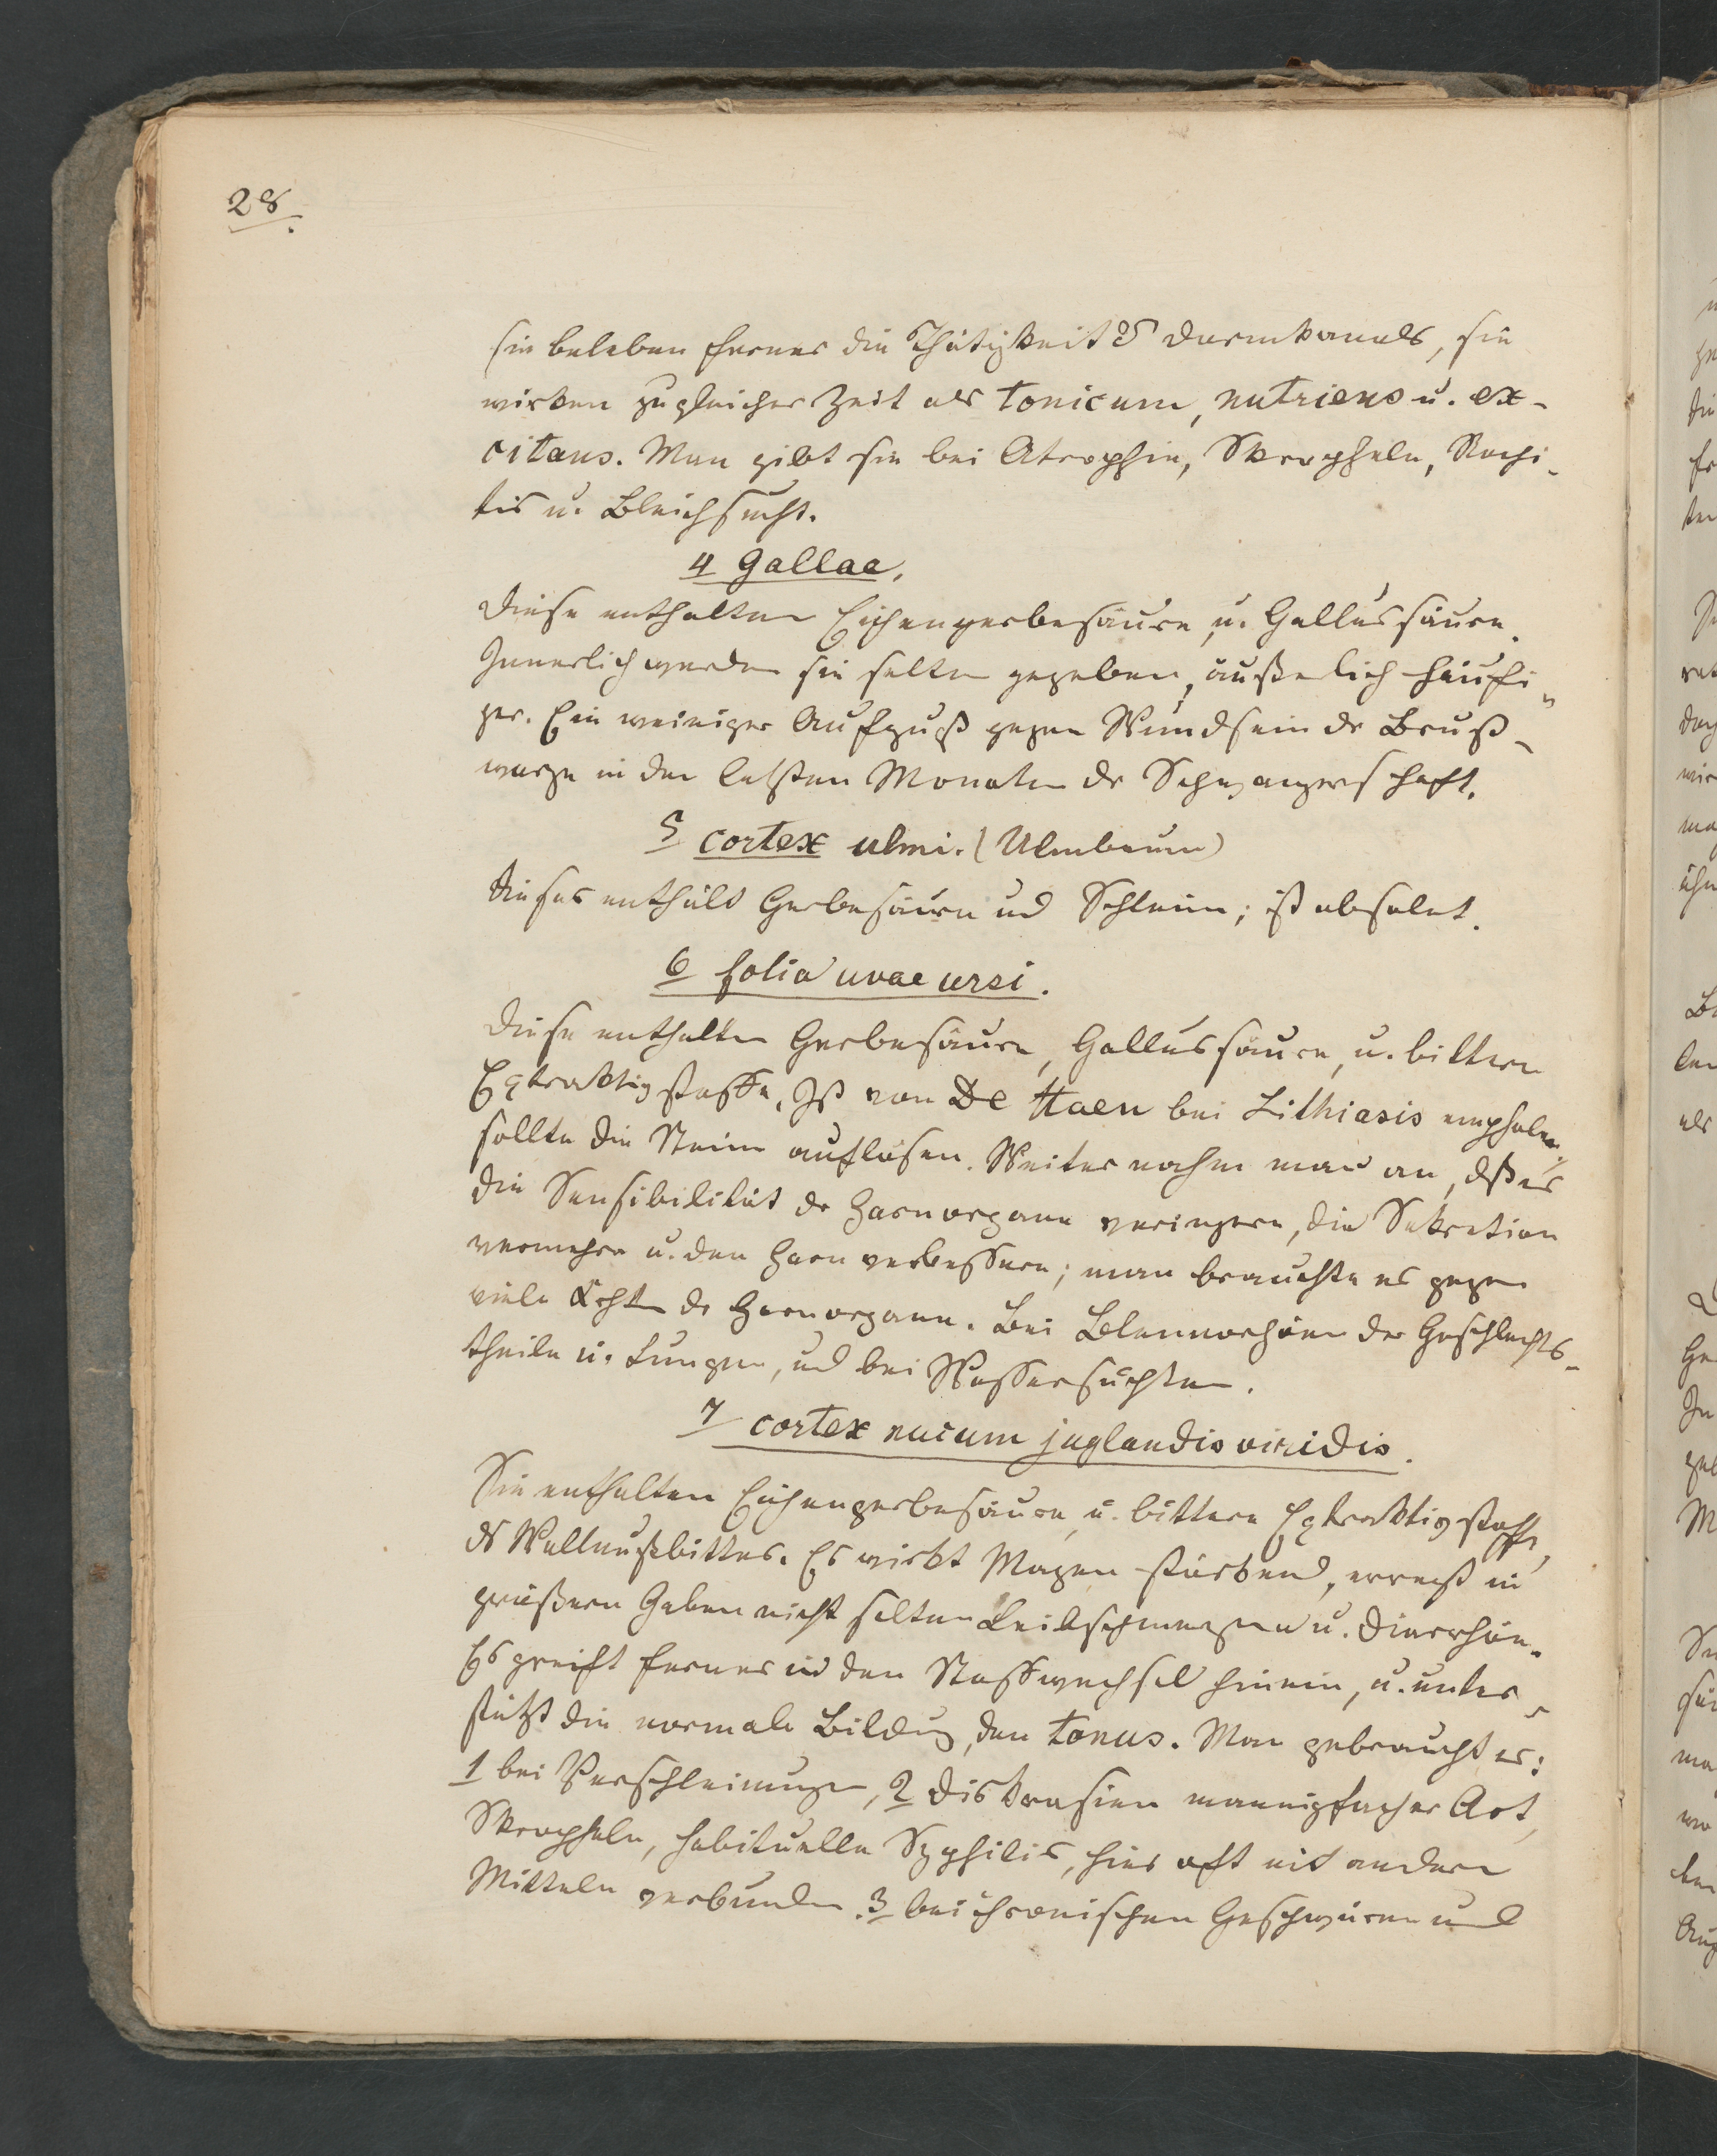 28.
sie beleben ferner die Thätigkeit ds Darmkanals, sie
wirken zu gleicher Zeit als tonicum, nutriens u. ex-
citans. Man gibt sie bei Atrophie, Skropheln, Rachi-
tis u. Bleichsucht.
4 Gallae.
Diese enthalten Eichengerbesäure u. Gallussäure.
Innerlich werden sie selten gegeben, äußerlich häufi-
ger. Ein weiniger Aufguß gegen Wundsein dr Brust-
warze in den letzten Monaten dr Schwangerschaft.
5 cortex ulmi. (Ulmbaum)
Dieses enthält Gerbesäure und Schleim; ist obsolet.
6 folia uvae ursi.
Diese enthalten Gerbesäure, Gallussäure, u. bittern
Extraktivstoffe. Ist von De Haen bei Lithiasis empholen
sollte die Steine auflösen. Weiter nahm man an, dß es
die Sensibilität dr Harnorgane veringere, die Sekretion
vermehre u. den Harn verbessere; man brauchte es gegen
viele dr Harnorgane. Bei Blennorhöen der Geschlechts-
theile u. Lungen, und bei Wassersuchten.
7 cortex nucum juglandis viridis.
Sie enthalten Eichengerbesäure u. bittere Extraktivstoffe,
ds Wallnußbitter. Es wirkt Magen stärkend, erregt in
größern Gaben nicht selten Leibschmerzen u. Diarrhöe.
Es greift ferner in den Stoffwechsel hinein, u. unter-
stützt die normale Bildung, den tonus. Man gebraucht es:
1 bei Verschleimungen, 2 Diskrasien mannigfacher Art,
Skropheln, habituelle Syphilis, hier oft mit andern
Mitteln verbunden. 3 bei chronischen Geschwüren und